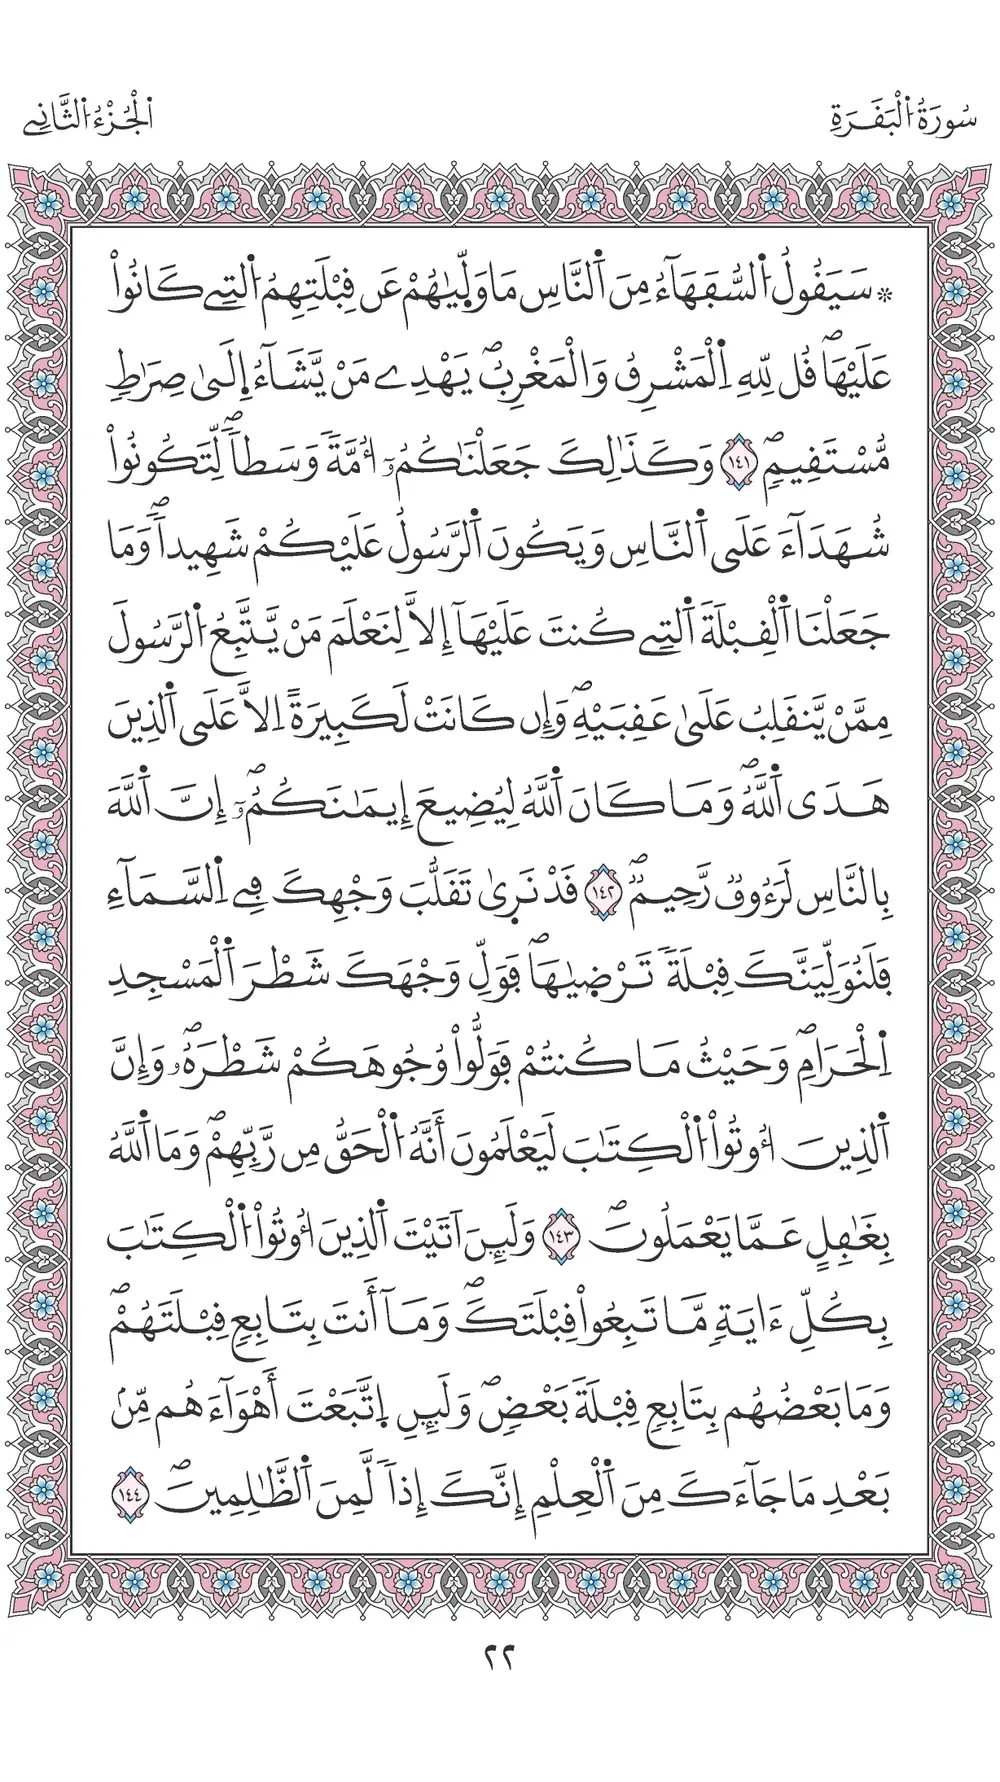 سُورَةُ اُ۬لْبَفَرَةِ
اَ۬لْجُزْءُ اُ۬لثَّانِے
۞ سَيَفُولُ اُ۬لسُّبَهَآءُ مِنَ اَ۬لنَّاسِ مَا وَلّ۪يٰهُمْ عَن فِبْلَتِهِمُ اُ۬لتِے كَانُواْ
عَلَيْهَاۖ فُل لِّلهِ اِ۬لْمَشْرِقُ وَالْمَغْرِبُۖ يَهْدِے مَنْ يَّشَآءُ اِ۪لَيٰ صِرَٰطٖ
مُّسْتَفِيمٖۖ ١٤١ وَكَذَٰلِكَ جَعَلْنَٰكُمُۥٓ أُمَّةٗ وَسَطاٗ لِّتَكُونُواْ
شُهَدَآءَ عَلَي اَ۬لنَّاسِ وَيَكُونَ اَ۬لرَّسُولُ عَلَيْكُمْ شَهِيداٗۖ وَمَا
جَعَلْنَا اَ۬لْفِبْلَةَ اَ۬لتِے كُنتَ عَلَيْهَآ إِلَّا لِنَعْلَمَ مَنْ يَّتَّبِعُ اُ۬لرَّسُولَ
مِمَّنْ يَّنفَلِبُ عَلَيٰ عَفِبَيْهِۖ وَإِن كَانَتْ لَكَبِيرَةً اِلَّا عَلَي اَ۬لذِينَ
هَدَي اَ۬للَّهُۖ وَمَا كَانَ اَ۬للَّهُ لِيُضِيعَ إِيمَٰنَكُمُۥٓۖ إِنَّ اَ۬للَّهَ
بِالنَّاسِ لَرَءُوفٞ رَّحِيمٞۖ ١٤٢ فَدْ نَر۪يٰ تَفَلُّبَ وَجْهِكَ فِے اِ۬لسَّمَآءِ
فَلَنُوَلِّيَنَّكَ فِبْلَةٗ تَرْض۪يٰهَاۖ فَوَلِّ وَجْهَكَ شَطْرَ اَ۬لْمَسْجِدِ
اِ۬لْحَرَامِۖ وَحَيْثُ مَا كُنتُمْ فَوَلُّواْ وُجُوهَكُمْ شَطْرَهُۥۖ وَإِنَّ
اَ۬لذِينَ أُوتُواْ اُ۬لْكِتَٰبَ لَيَعْلَمُونَ أَنَّهُ اُ۬لْحَقُّ مِن رَّبِّهِمْۖ وَمَا اَ۬للَّهُ
بِغَٰفِلٍ عَمَّا يَعْمَلُونَۖ ١٤٣ وَلَئِنَ اَتَيْتَ اَ۬لذِينَ أُوتُواْ اُ۬لْكِتَٰبَ
بِكُلِّ ءَايَةٖ مَّا تَبِعُواْ فِبْلَتَكَۖ وَمَآ أَنتَ بِتَابِعٖ فِبْلَتَهُمْۖ
وَمَا بَعْضُهُم بِتَابِعٖ فِبْلَةَ بَعْضٖۖ وَلَئِنِ اِ۪تَّبَعْتَ أَهْوَآءَهُم مِّنۢ
بَعْدِ مَا جَآءَكَ مِنَ اَ۬لْعِلْمِ إِنَّكَ إِذاٗ لَّمِنَ اَ۬لظَّٰلِمِينَۖ ١٤٤
٢٢